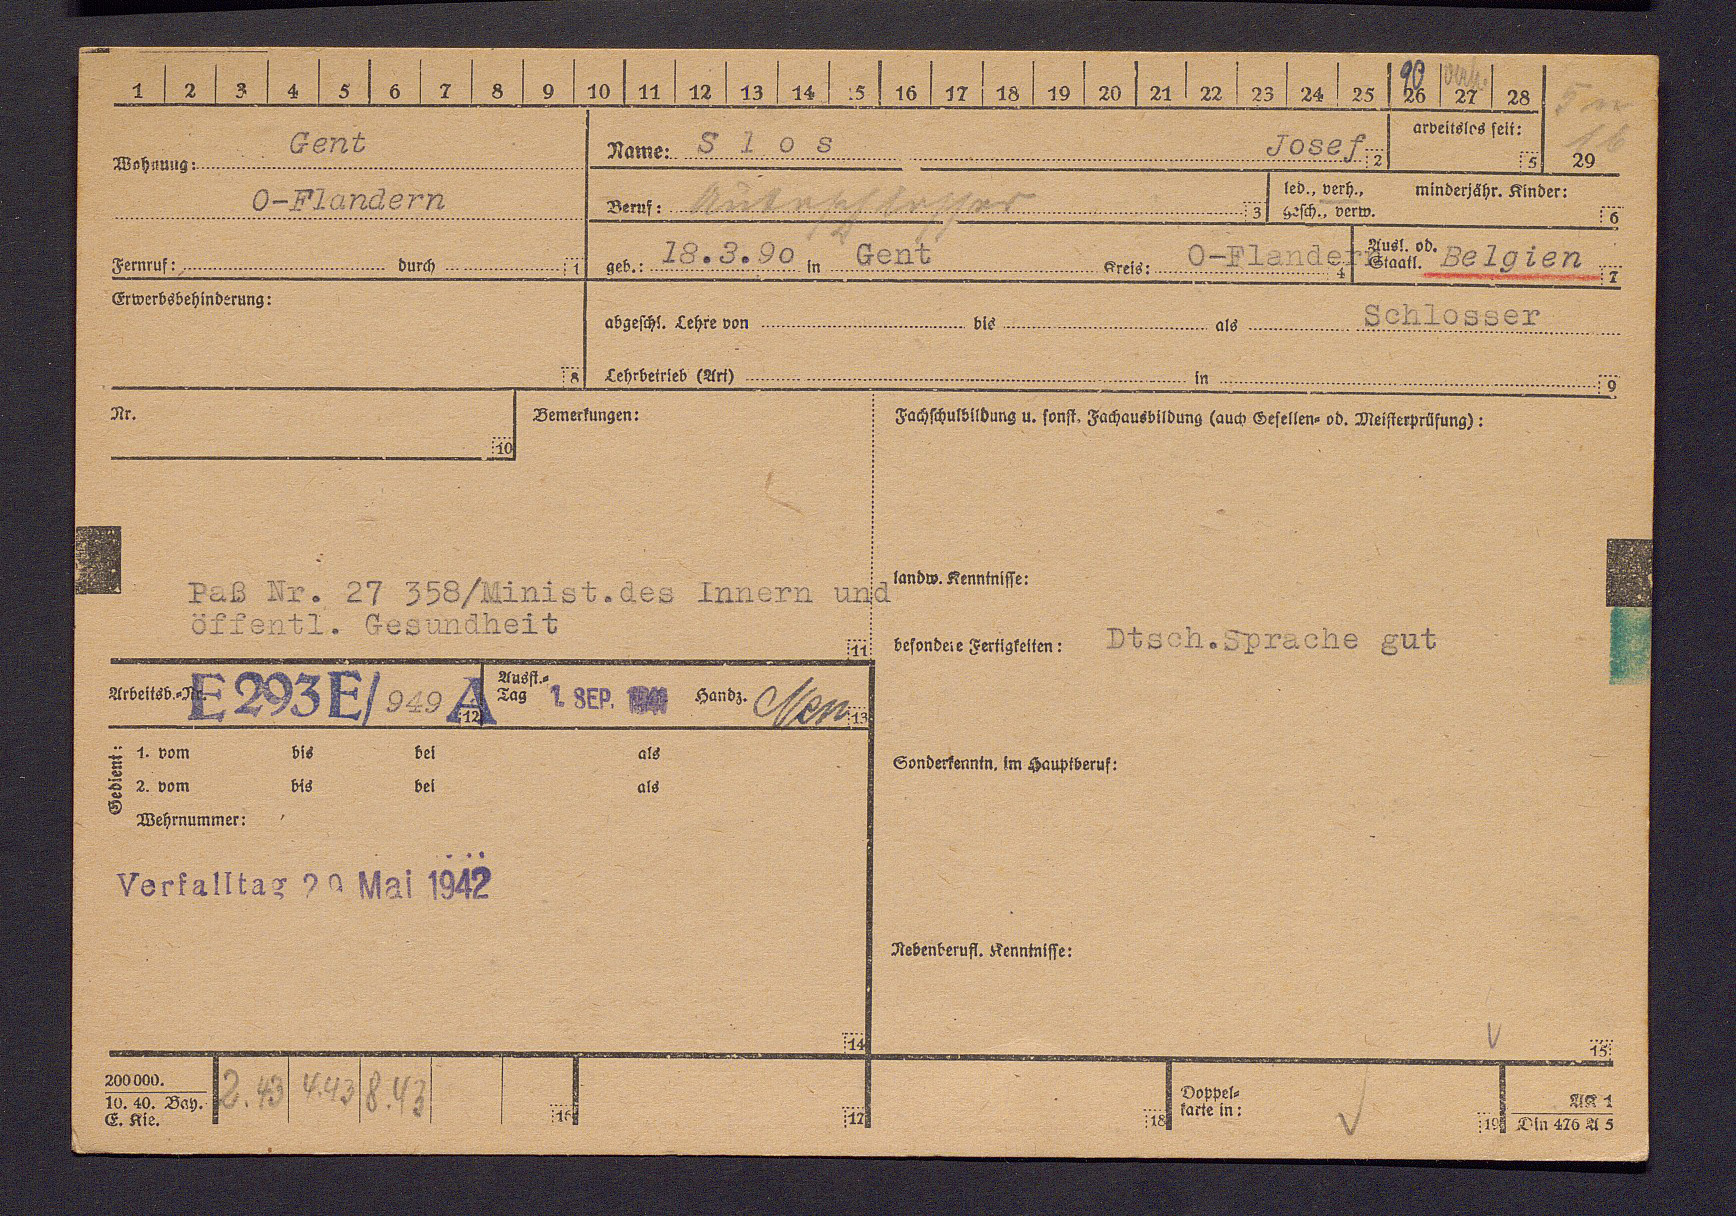 1 2 3 4 5 6 7 8 9 10 11 12 13 14 15 16 17 18 19 20 21 22 23 24 25 26 27 28
90 verh.
Wohnung: Gent
O-Flandern
Fernruf: durch 1
Name: Slos Josef 2
arbeitslos seit: 5
29
Beruf: Autoschlosser 3
led., verh., gesch., verw.
minderjähr. Kinder: 6
geb.: 18.3.90 in Gent Kreis: O-Flandern 4
Ausl. od. Staatl. Belgien 7
Erwerbsbehinderung: 8
abgeschl. Lehre von bis als Schlosser
Lehrbetrieb (Art) in 9
Nr. 10
Bemerkungen:
Paß Nr. 27 358/Minist.des Innern und
öffentl. Gesundheit
11
Fachschulbildung u. sonst. Fachausbildung (auch Gesellen- od. Meisterprüfung):
landw. Kenntnisse:
besondere Fertigkeiten: Dtsch.Sprache gut
Sonderkenntn. im Hauptberuf:
Nebenberufl. Kenntnisse:
15
Arbeitsb.-Nr. E 293E/949 A 12
Ausst.-Tag 1. SEP. 1941 Handz. 13
Gedient:
1. vom bis bei als
2. vom bis bei als
Wehrnummer:
Verfalltag 20 Mai 1942
14
200000.
10. 40. Bay.
E. Kie.
2.43 4.43 8.43
16 17 18
Doppel-
karte in:
19
AK 1
Din 476 A 5